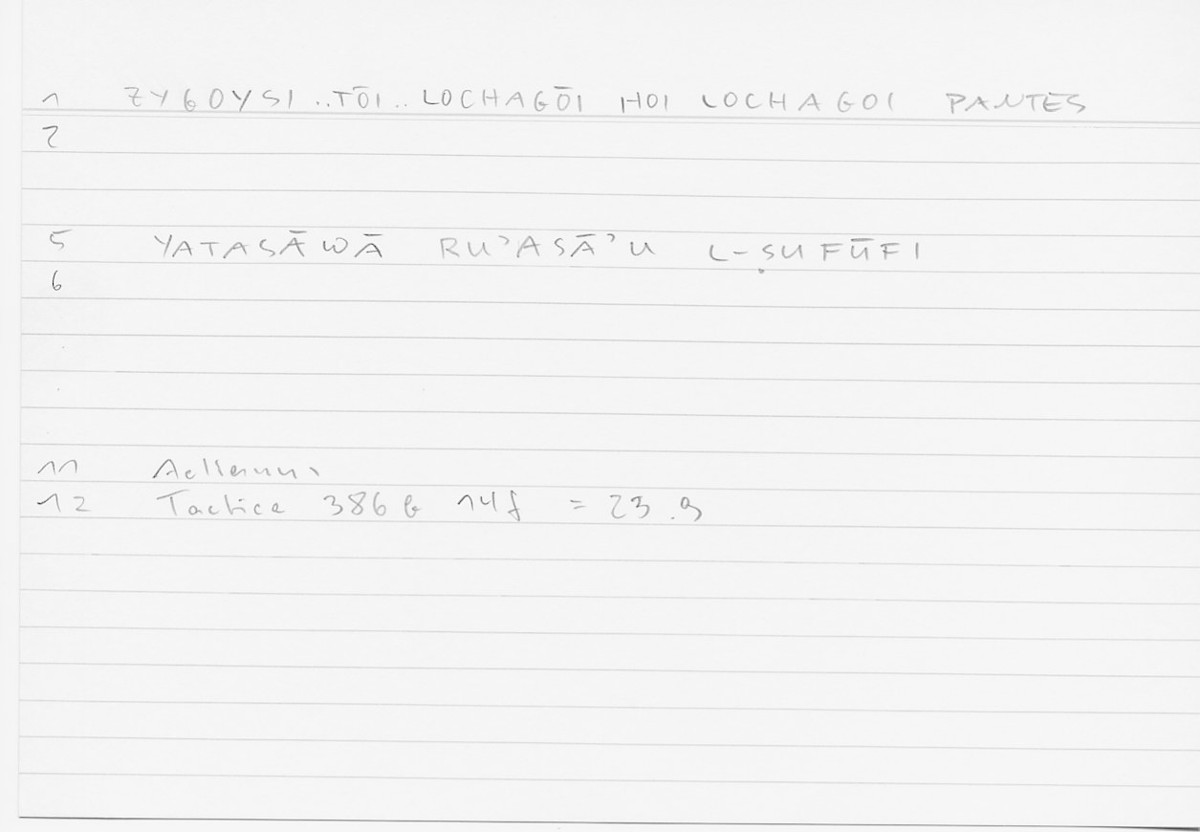 1 ZYGOYSI ..TŌI.. LOCHAGŌI HOI LOCHAGOI PANTES
2
5 YATASĀWĀ RU'ASĀ'U L-ṢUFŪFI
6
11 Aelianus
12 Tactica 386 b 14f = 23.9